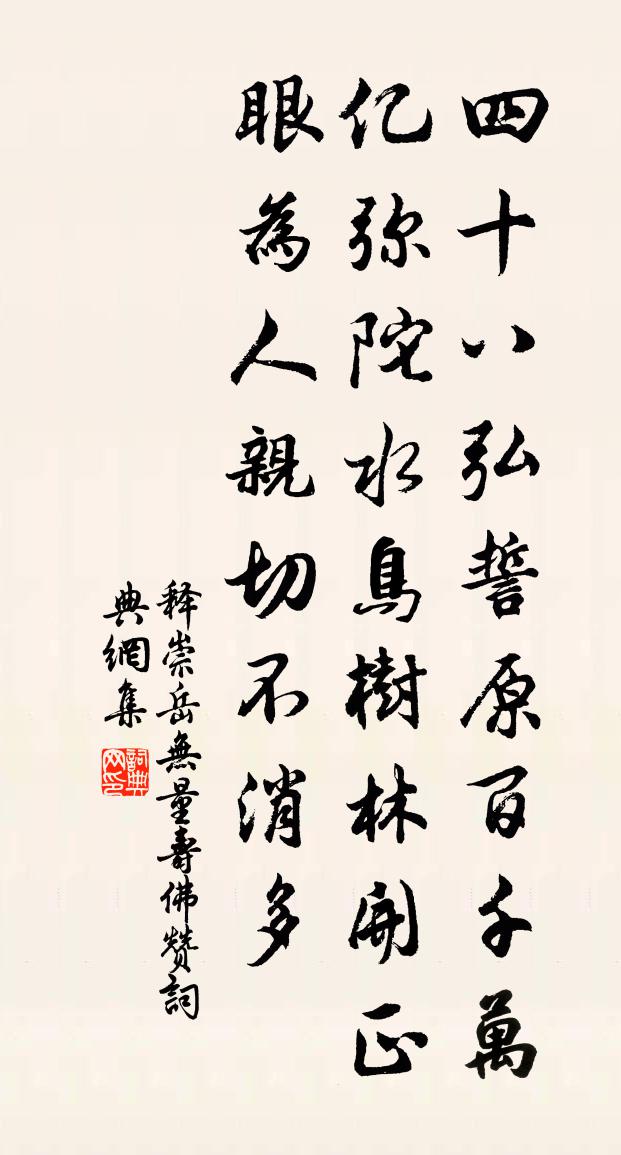 四十八弘誓原百千萬
亿弥陀水鳥樹林開正
眼為人親切不消多
释崇岳無量壽佛赞詞
典網集
詞典网印